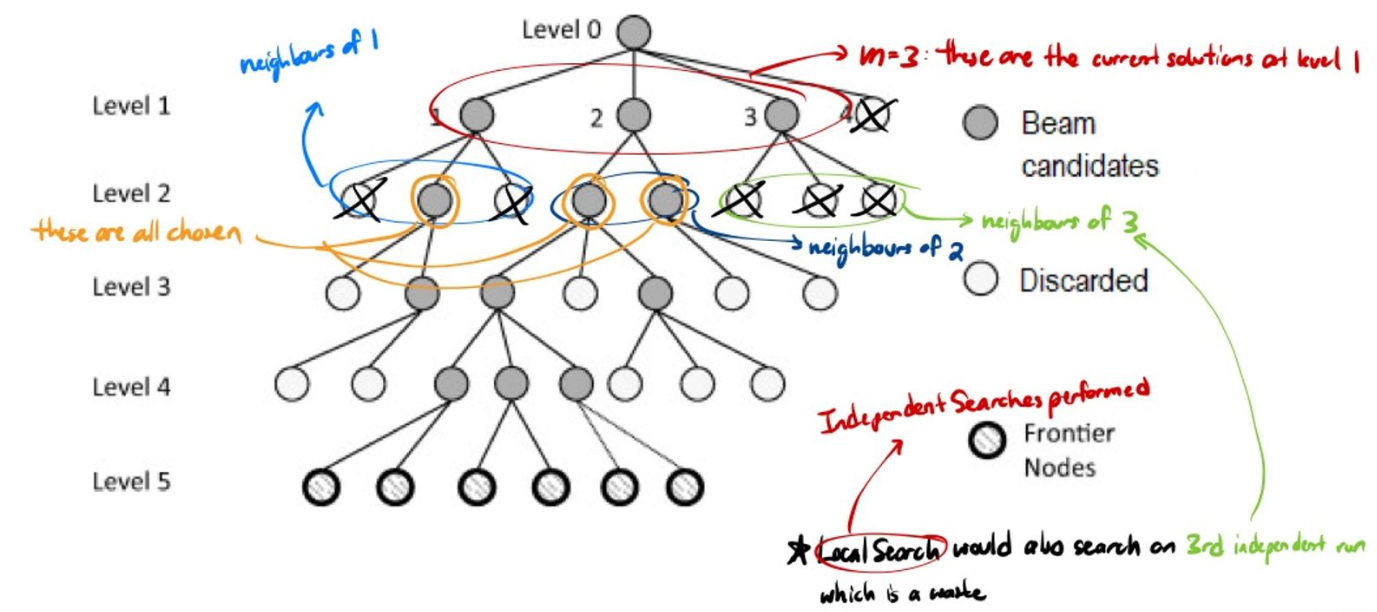 Level 0
neighbours of 1
m=3: these are the current solutions at level 1
Level 1
1
2
3
4
Beam
candidates
Level 2
these are all chosen
neighbours of 3
neighbours of 2
Level 3
Discarded
Level 4
Independent Searches performed
Frontier
Nodes
Level 5
* Local Search would also search on 3rd independent run
which is a waste